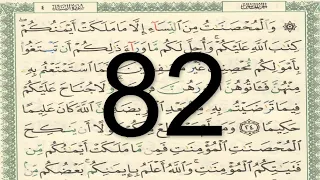 وَٱلْمُحْصَنَٰتُ مِنَ ٱلنِّسَآءِ إِلَّا مَا مَلَكَتْ أَيْمَٰنُكُمْ
كِتَٰبَ ٱللَّهِ عَلَيْكُمْ وَأُحِلَّ لَكُم مَّا وَرَآءَ ذَٰلِكُمْ أَن تَبْتَغُوا۟
بِأَمْوَٰلِكُم مُّحْصِنِينَ غَيْرَ فَمَا ٱسْتَمْتَعْتُم بِهِۦ
مِنْهُنَّ فَـَٔاتُوهُنَّ وَلَا جُنَاحَ عَلَيْكُمْ
فِيمَا تَرَٰضَيْتُم بِهِۦ إِنَّ ٱللَّهَ كَانَ عَلِيمًا
حَكِيمًا ٢٤ أَن يَنكِحَ
ٱلْمُحْصَنَٰتِ ٱلْمُؤْمِنَٰتِ فَمِن مَّا مَلَكَتْ أَيْمَٰنُكُم مِّن
فَتَيَٰتِكُمُ ٱلْمُؤْمِنَٰتِ وَٱللَّهُ أَعْلَمُ بِإِيمَٰنِكُم بَعْضُكُم
82